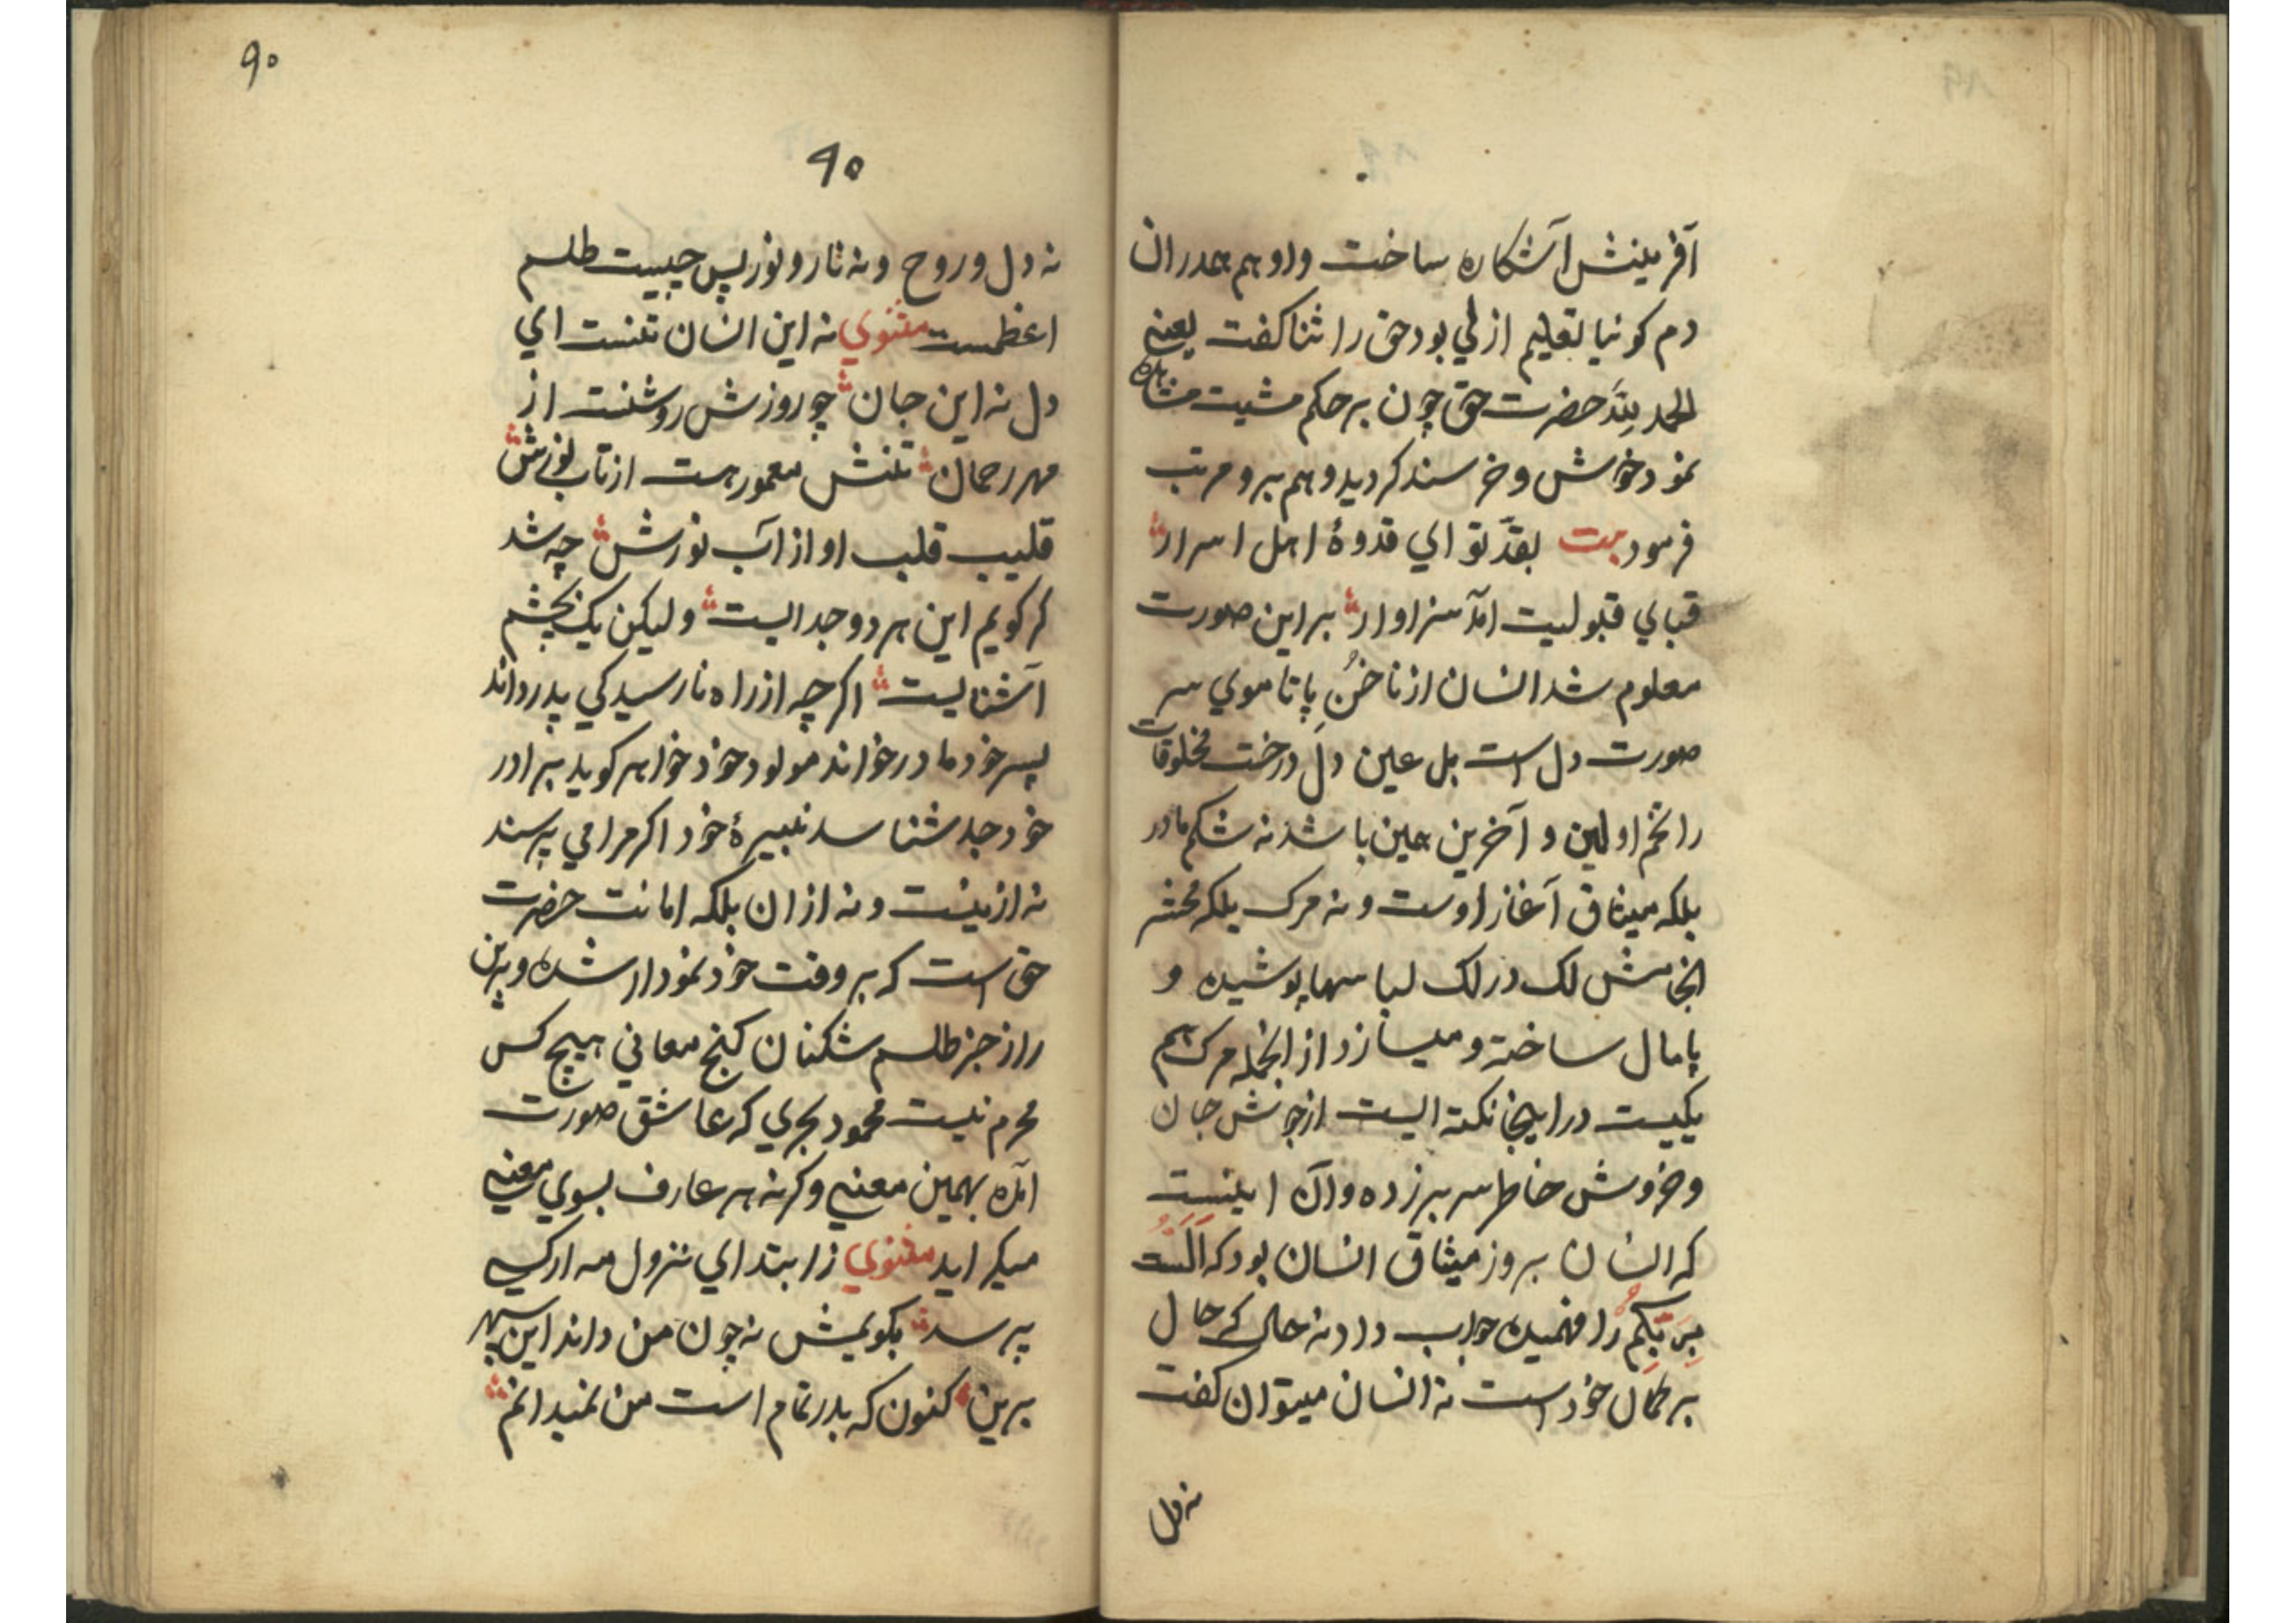 آفرینش آشکاره ساخت واو هم همدران
دم کونیا بتعلیم ازلي بود حق را ثنا کفت یعنے
الحمد للہ حضرت حق چون بر حکم مشیت مشاہدہ
نمود خوش و خرسند کردید و هم برو مرتب
فرمود بیت بقد تو اي قدوۀ اہل اسرار
قباي قبولیت آمد سزاوار بر این صورت
معلوم شد انسان از ناخن پا تا موي سر
صورت دل است بل عین دل درخت مخلوقات
را تخم اولین و آخرین همین باشد نه شکم مادر
بلکه میثاق آغاز اوست و نه مرک بلکه محشر
انجامش لک در لک لباسها پوشیده و
پامال ساخته و میسازد از انجمله مرک هم
یکیست در اینجا نکته ایست از جوش جان
و خروش خاطر سر برزده وآن اینست
که انسان بروز میثاق انسان بود که الَسْتُ
بِرَبِّكُمْ را فهمیده جواب داد نه حالی که حال
بر کمال خود است نه انسان میتوان کفت
نه دل
۹۰
۹۰
نه دل و روح و نه نار و نور پس چیست طلسم
اعظمست مثنوي نه این انسان تنست اي
دل نه این جان چو روزش روشنت از
مهر رحمان تنش معمور هست از تاب نورش
قلیب قلب او از آب نورش چه شد
کر کویم این هر دو جدایست ولیکن یک بچشم
آشنایست اکرچه از راه نارسیدکي پدر داند
پسر خود مادر خواند مولود خود خواهر کوید برادر
خود جد شناسد نبیرۀ خود اکر مرا مي پرسند
نه از نیست و نه از ان بلکه امانت حضرت
حق است که بر وقت خود نمودار شده و برین
راز جز طلسم شکنان کنج معاني هیچ کس
محرم نیست محمود بحري که عاشق صورت
آمده بهمین معنے وکرنه هر عارف بسوي معنے
میکراید مثنوي ز ابتداي نزول مه ار کسے
پرسد بکویمش نه چون من داند این سپهر
برین کنون که بدر تمام است من نمیدانم